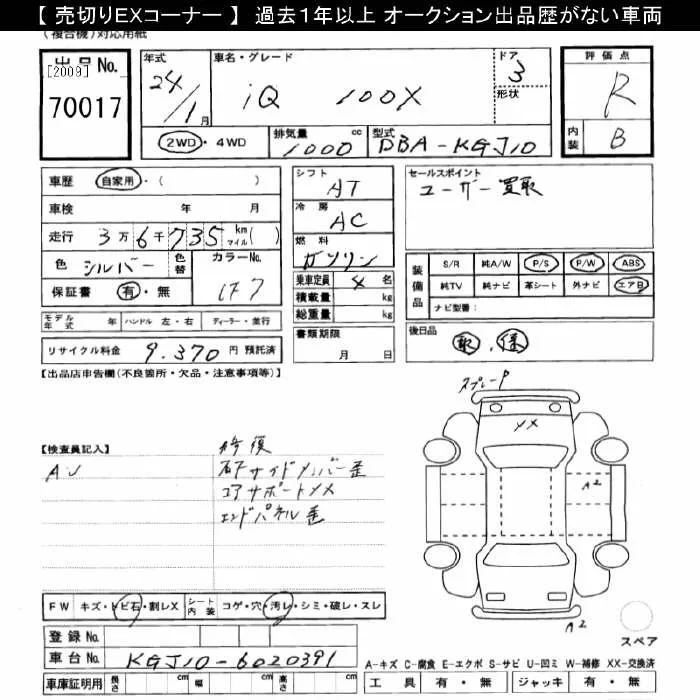 【 売切りEXコーナー 】 過去1年以上 オークション出品歴がない車両
(複合機)対応用紙
出品No.
[2009]
70017
年式
24/1月
車名・グレード
iQ 100X
ドア
3
形状
評価点
R
内装
B
2WD・4WD
排気量
1000cc
型式
DBA-KGJ10
車歴 自家用・( )
車検 年 月
走行 3万6千735 km マイル( )
色 シルバー 色替
カラーNo.
1F7
保証書 有・無
シフト
AT
冷房
AC
燃料
ガソリン
乗車定員 4名
積載量 kg
総重量 kg
セールスポイント
ユーザー買取
装備品
S/R 純A/W P/S P/W ABS
純TV 純ナビ 革シート 外ナビ エアB
ナビ型番:
モデル年式 年 ハンドル 左・右 ディーラー・並行
リサイクル料金 9,370円 預託済
書類期限
月 日
後日品
取・保
【出品店申告欄(不良箇所・欠品・注意事項等)】
スプレーP
XX
A2
【検査員記入】
修復
右Fサイドメンバー歪
コアサポートXX
エンドパネル歪
FW キズ・トビ石・割レX
シート内装 コゲ・穴・汚レ・シミ・破レ・スレ
A2
スペア
登録No.
車台No. KGJ10-6020391
A-キズ C-腐食 E-エクボ S-サビ U-凹ミ W-補修 XX-交換済
車庫証明用 長さ cm 幅 cm 高さ cm
工具 有・無 ジャッキ 有・無